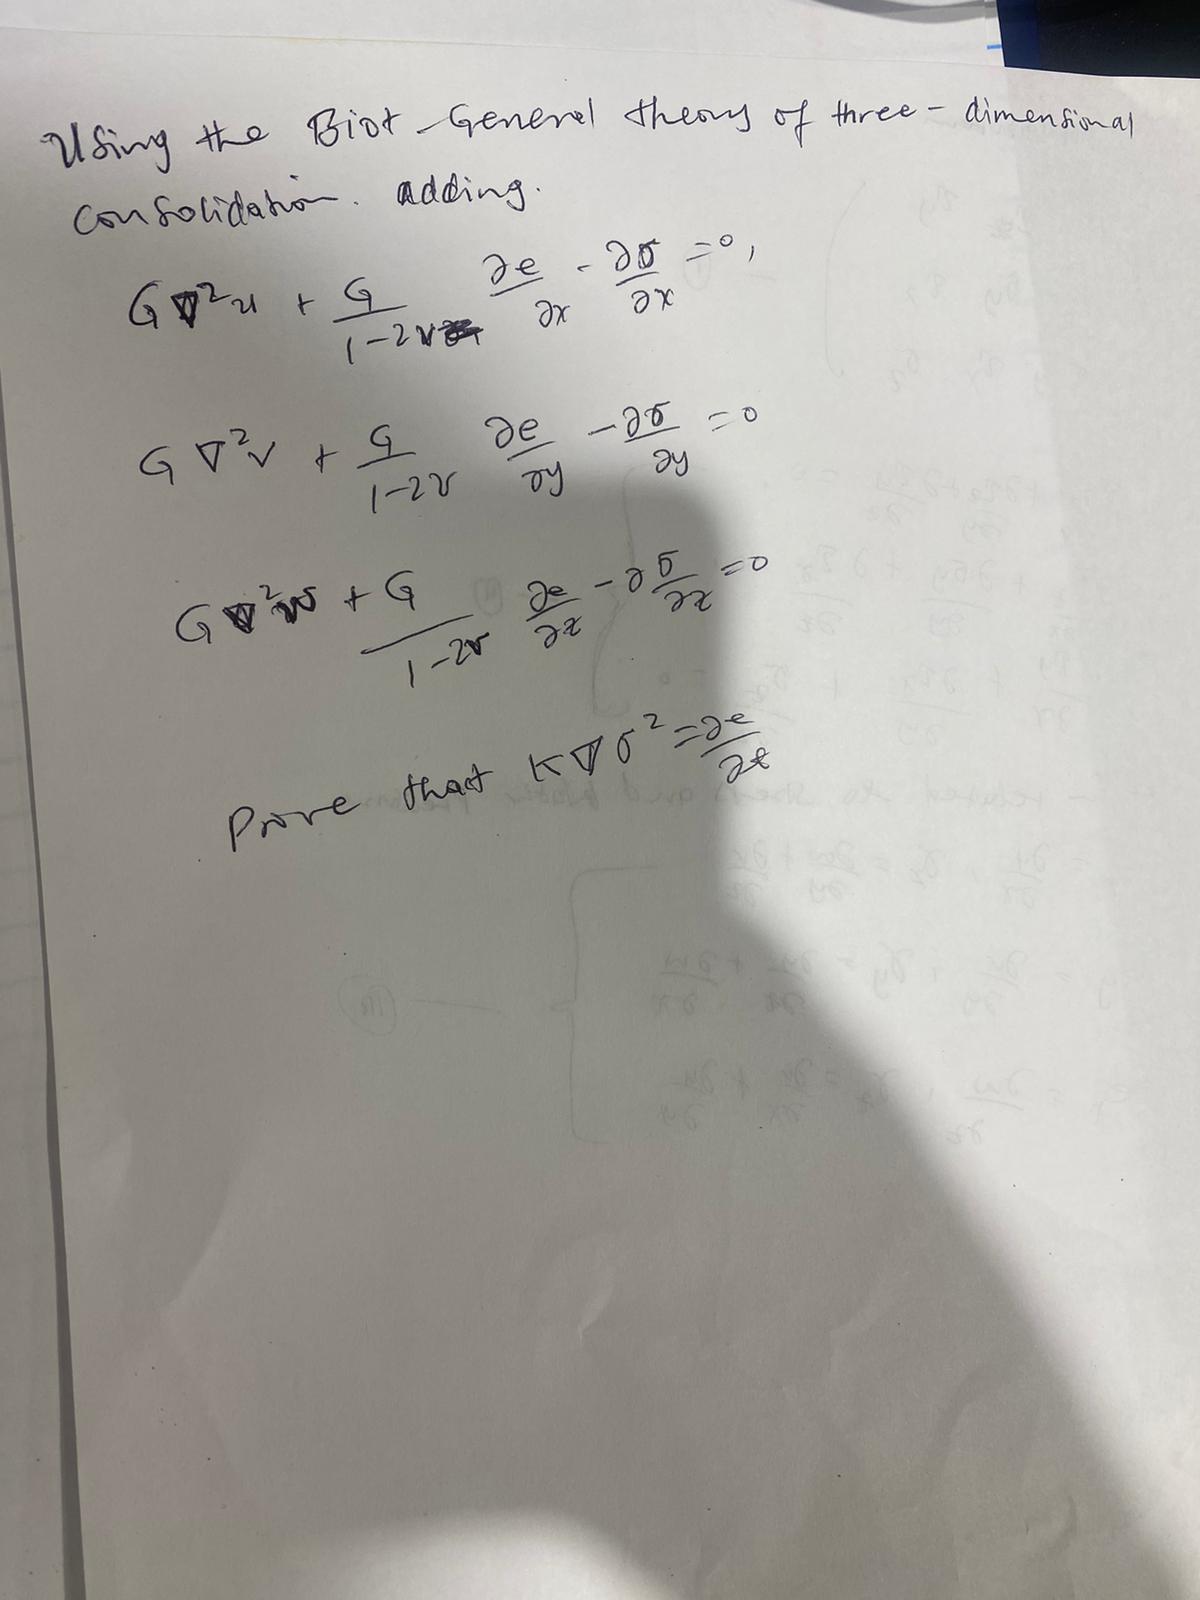 Using the Biot General theory of three-dimensional
consolidation. adding.
G∇²u + G/(1-2ν) ∂e/∂x - ∂σ/∂x = 0,
G∇²v + G/(1-2ν) ∂e/∂y - ∂σ/∂y = 0
G∇²w + G/(1-2ν) ∂e/∂z - ∂σ/∂z = 0
Prove that K∇σ² = ∂e/∂t